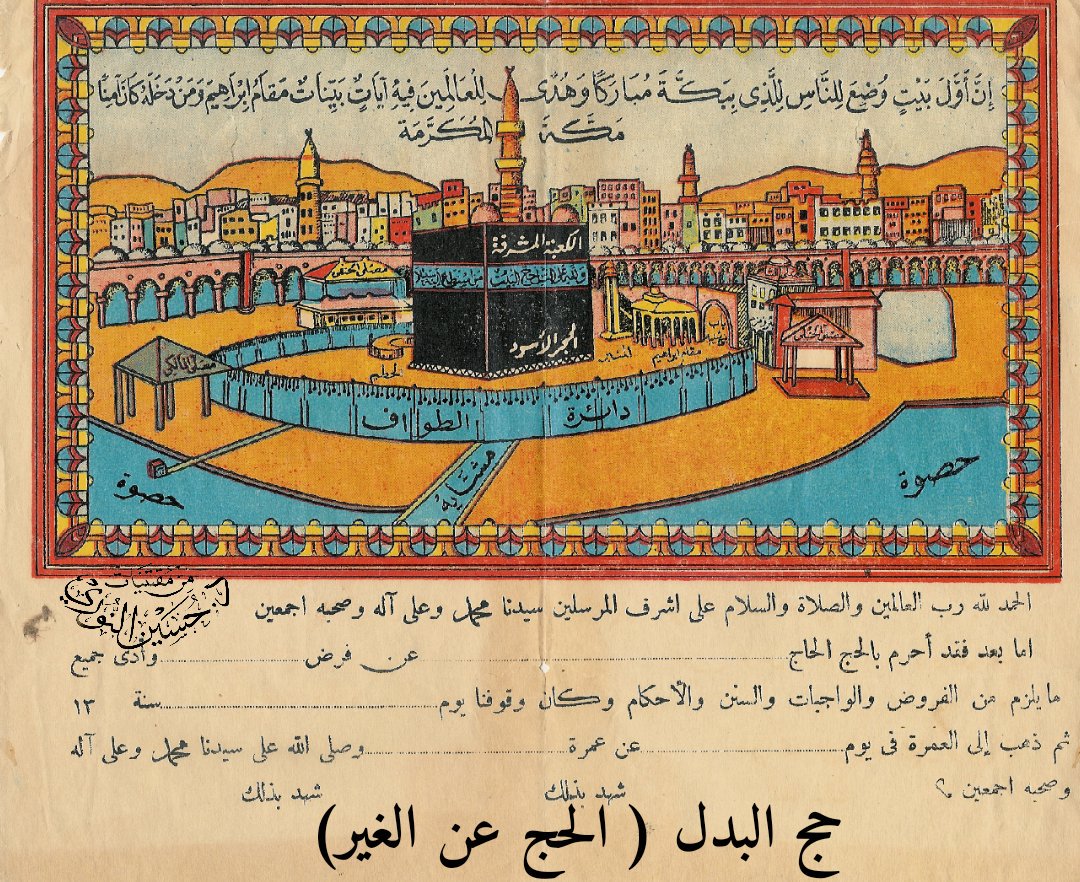 إِنَّ أَوَّلَ بَيْتٍ وُضِعَ لِلنَّاسِ لَلَّذِي بِبَكَّةَ مُبَارَكًا وَهُدًى لِلْعَالَمِينَ فِيهِ آيَاتٌ بَيِّنَاتٌ مَقَامُ إِبْرَاهِيمَ وَمَنْ دَخَلَهُ كَانَ آمِنًا
مَكَّةَ المُكَرَّمَة
الكعبة المشرفة
مصلى الحنفي
الحجر الأسود
مقام ابراهيم
مصلى المالكي
دائرة الطواف
مشايه
حصوة
حصوة
من مقتنيات
حسين النوري
الحمد لله رب العالمين والصلاة والسلام على اشرف المرسلين سيدنا محمد وعلى آله وصحبه اجمعين
اما بعد فقد أحرم بالحج الحاج ........ عن فرض ........ وأدى جميع
مايلزم من الفروض والواجبات والسنن والأحكام وكان وقوفنا يوم ........ سنة ١٣
ثم ذهب إلى العمرة فى يوم ........ عن عمرة ........ وصلى الله على سيدنا محمد وعلى آله
وصحبه اجمعين
شهد بذلك شهد بذلك
حج البدل ( الحج عن الغير)